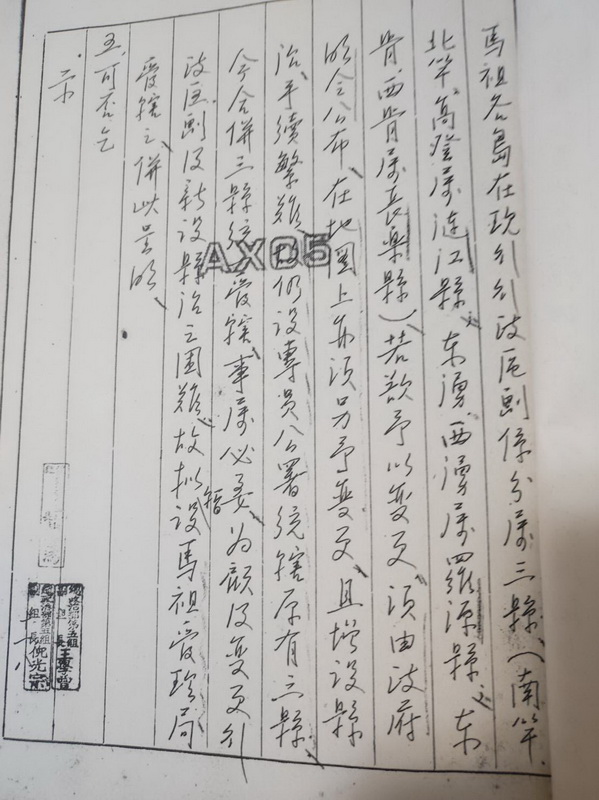 馬祖各島在現行行政區劃係分屬三縣、(南竿
北竿、高登屬連江縣、東湧、西湧屬羅源縣、東
肯、西肯屬長樂縣)若欲予以變更、須由政府
明令公布、在地圖上亦須另予變更、且增設縣
治、手續繁難、仍設專員公署統轄原有三縣、
令合併三縣統一管轄、事屬必要、為顧及變更行
政區劃及新設縣治之困難、故擬暫設馬祖管理局
管轄之併此呈明、
五、可否乞
示
AX05
組長倪光宗